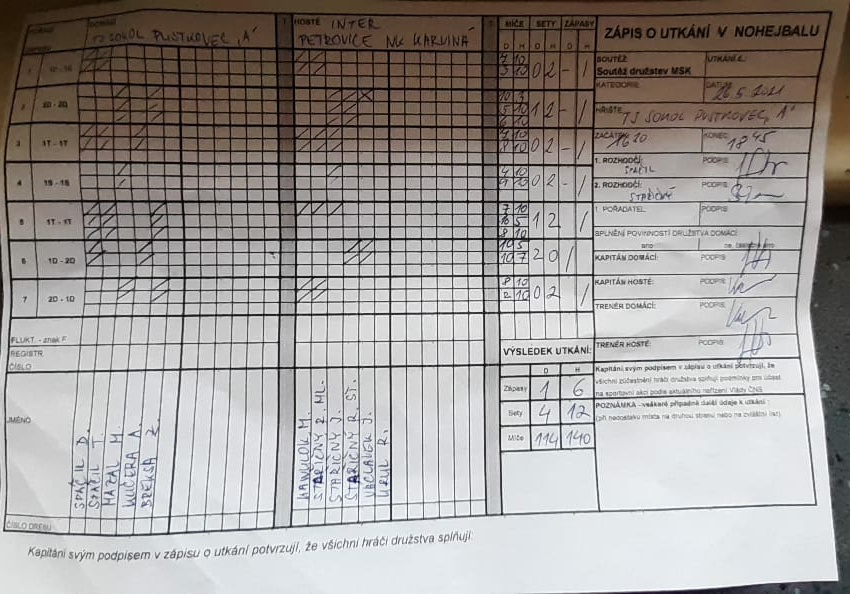 DOMÁCÍ TJ SOKOL PUSTKOVEC „A"
HOSTÉ INTER PETROVICE NK KARVINÁ
MÍČE SETY ZÁPASY
D H D H D H
1 1D - 1D 7 10 0 2 - 1
5 10
2 2D - 2D 10 1 2 - 1
5 10
6 10
3 1T - 1T 7 10 0 2 - 1
8 10
4 4 10 0 2 - 1
9 10
5 1T - 1T 7 10 1 2 1
10 5
8 10
6 1D - 2D 10 5 2 0 1
10 7
7 2D - 1D 8 10 0 2 1
2 10
FLUKT. - znak F
REGISTR.
ČÍSLO
JMÉNO
SPÁČIL D.
SPÁČIL T.
MAZAL M.
KUČERA A.
BREKSA Z.
HAWLOK M.
STAŘIČNÝ R. ML.
STAŘIČNÝ J.
STAŘIČNÝ R. ST.
VÁCLAVEK J.
URUL R.
ČÍSLO DRESU
ZÁPIS O UTKÁNÍ V NOHEJBALU
SOUTĚŽ: UTKÁNÍ č.:
Soutěž družstev MSK
KATEGORIE: DATUM: 26.5.2021
HŘIŠTĚ: TJ SOKOL PUSTKOVEC „A"
ZAČÁTEK: 1610 KONEC: 1845
1. ROZHODČÍ: SPÁČIL PODPIS:
2. ROZHODČÍ: STAŘIČNÝ PODPIS:
1. POŘADATEL: PODPIS:
SPLNĚNÍ POVINNOSTÍ DRUŽSTVA DOMÁCÍ:
ano ne, částečně ano
KAPITÁN DOMÁCÍ: PODPIS:
KAPITÁN HOSTÉ: PODPIS:
TRENÉR DOMÁCÍ: PODPIS:
TRENÉR HOSTÉ: PODPIS:
VÝSLEDEK UTKÁNÍ:
D H
Zápasy 1 6
Sety 4 12
Míče 114 140
Kapitáni svým podpisem v zápisu o utkání potvrzují, že
všichni zúčastnění hráči družstva splňují podmínky pro účast
na sportovní akci podle aktuálního nařízení Vlády ČNS
POZNÁMKA - veškeré případné další údaje k utkání :
(při nedostatku místa na druhou stranu nebo na zvláštní list)
Kapitáni svým podpisem v zápisu o utkání potvrzují, že všichni hráči družstva splňují: